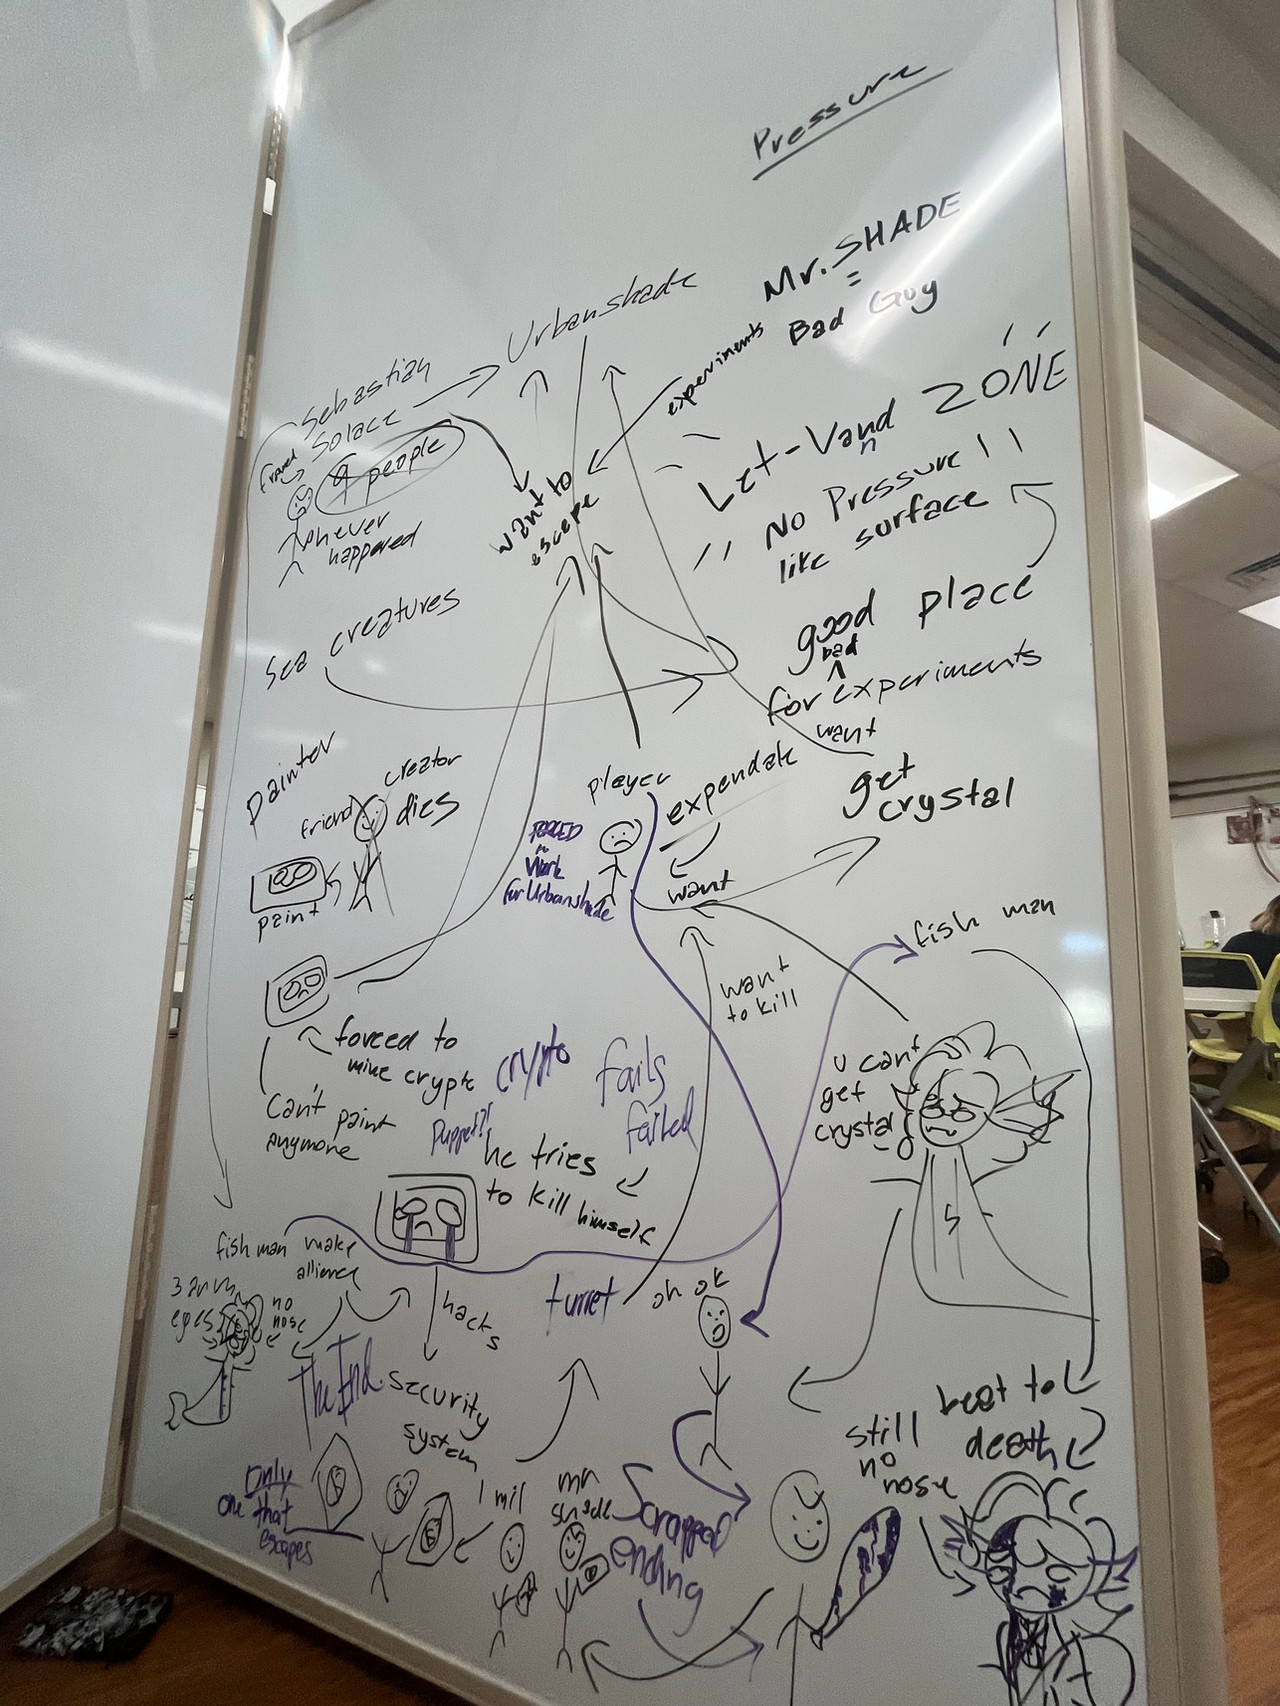 Pressure
Mr. SHADE
=
Bad Guy
Urbanshade
experiments
Sebastian
Solace
framed
9 people
whever
happened
want to
escape
Let-Vand ZONE
n
No Pressure!!
like surface
good place
bad
for experiments
Sea creatures
Painter
creator
friend
dies
paint
player
expendable
want
get
crystal
FORCED
Work
for Urbanshade
want
fish man
want
to kill
u can't
get
crystal
forced to
mine crypto
crypto
fails
failed
can't paint
anymore
Puppet?!
he tries
to kill himself
fish man make
allience
3 arm
eyes
no
nose
hacks
turret
oh ok
The End
security
system
beat to
death
still
no
nose
only
one that
escapes
1 mil
mr
shade
Scrapped
ending